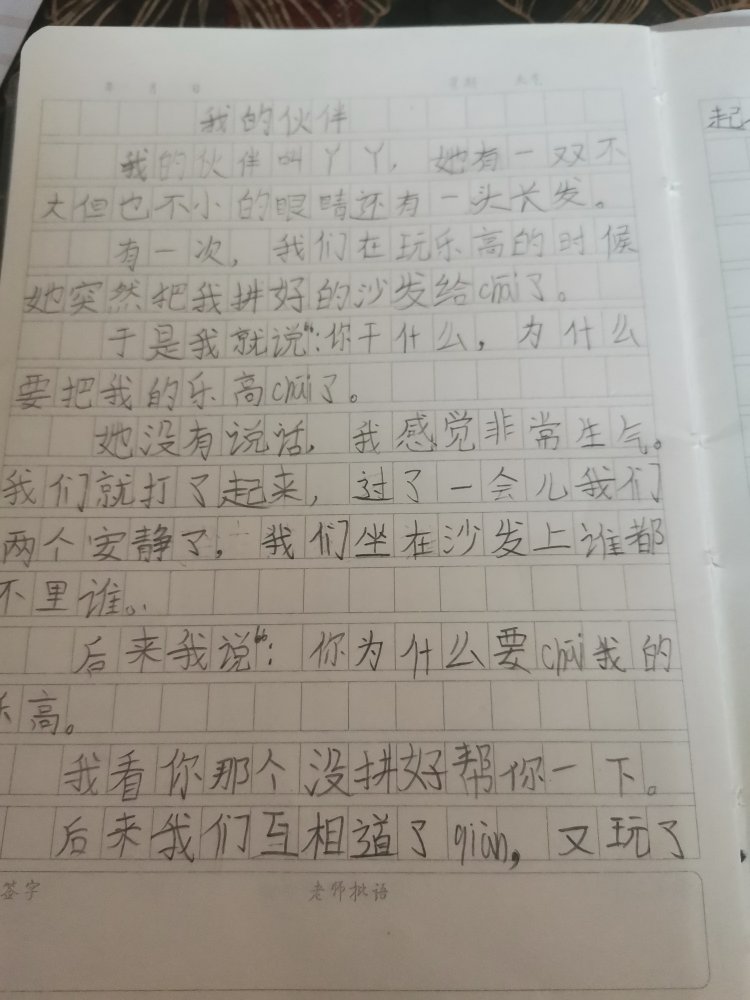 年 月 日 星期 天气
我的伙伴
我的伙伴叫丫丫，她有一双不
大但也不小的眼睛还有一头长发。
有一次，我们在玩乐高的时候
她突然把我拼好的沙发给chāi了。
于是我就说“：你干什么，为什么
要把我的乐高chāi了。
她没有说话，我感觉非常生气。
我们就打了起来，过了一会儿我们
两个安静了，我们坐在沙发上谁都
不里谁。
后来我说“：你为什么要chāi我的
乐高。
我看你那个没拼好帮你一下。
后来我们互相道了qiàn，又玩了
签字 老师批语
起